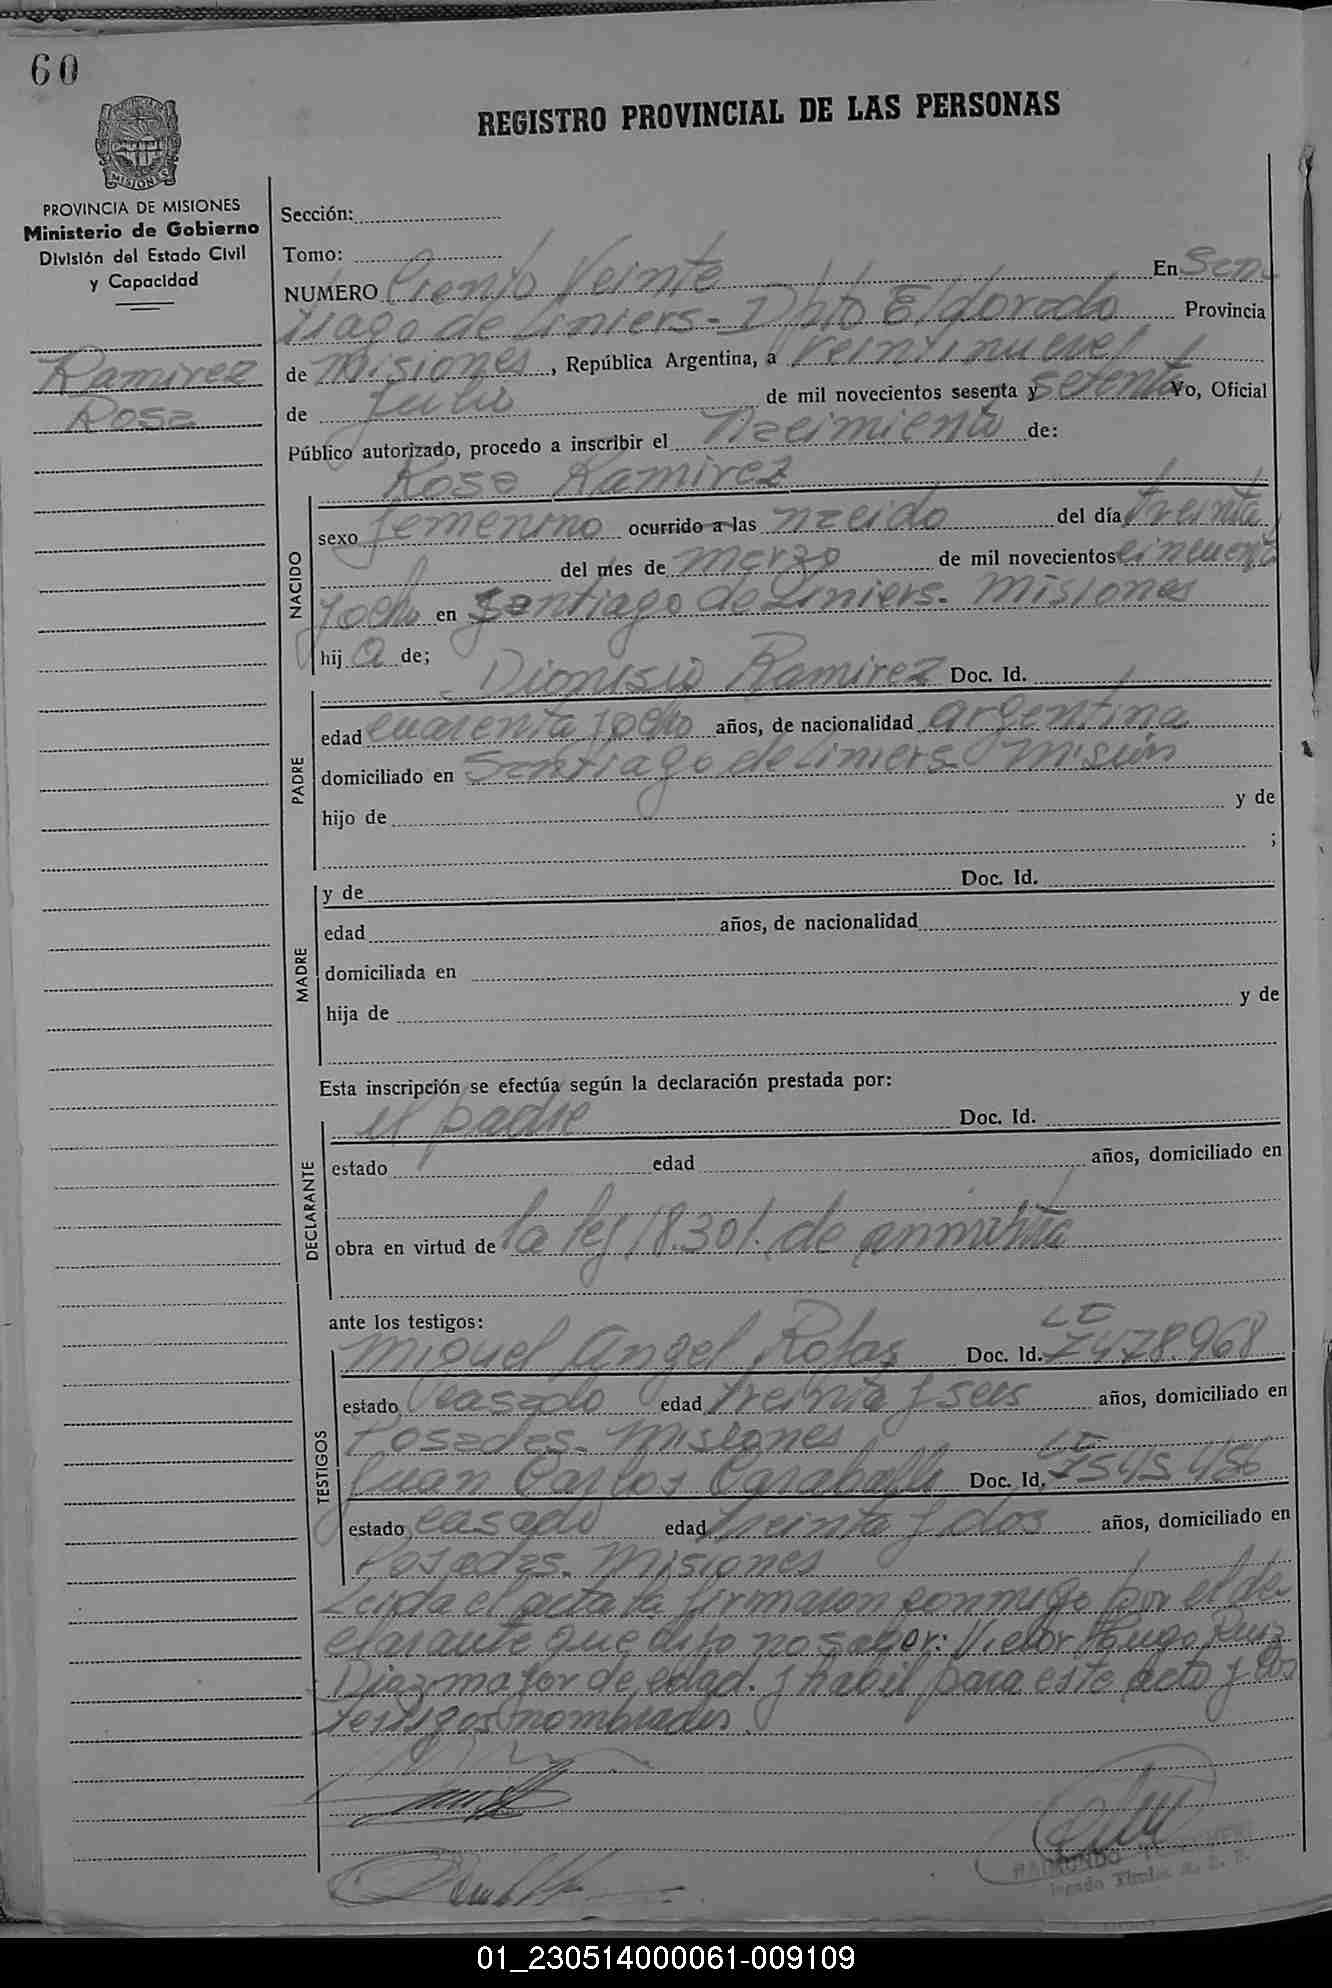 60
REGISTRO PROVINCIAL DE LAS PERSONAS
MISIONES
PROVINCIA DE MISIONES
Ministerio de Gobierno
División del Estado Civil
y Capacidad
Ramirez
Rosa
Sección:
Tomo:
NUMERO Ciento Veinte En San
tiago de Liniers - Dpto Eldorado Provincia
de Misiones, República Argentina, a veintinueve
de Julio de mil novecientos sesenta y setenta Yo, Oficial
Público autorizado, procedo a inscribir el Nacimiento de:
Rosa Ramirez
NACIDO
sexo femenino ocurrido a las nacido del día treinta
del mes de marzo de mil novecientos cincuenta
y ocho en Santiago de Liniers. Misiones
hij a de;
Dionisio Ramirez Doc. Id.
PADRE
edad cuarenta y ocho años, de nacionalidad argentina
domiciliado en Santiago de Liniers
hijo de y de
;
MADRE
y de Doc. Id.
edad años, de nacionalidad
domiciliada en
hija de y de
Esta inscripción se efectúa según la declaración prestada por:
DECLARANTE
el padre Doc. Id.
estado edad años, domiciliado en
obra en virtud de la ley 18.301. de
ante los testigos:
TESTIGOS
Miguel Angel Doc. Id. LE 7478.968
estado casado edad treinta y seis años, domiciliado en
Posadas. Misiones
Juan Carlos Doc. Id. LE 7545456
estado casado edad treinta y dos años, domiciliado en
Posadas. Misiones
Leida el acta la firmaron conmigo por el de
clarante que dijo no saber: Victor Hugo Ruiz
Diaz mayor de edad. y habil para este acto y los
testigos nombrados
RAIMUNDO
01_230514000061-009109